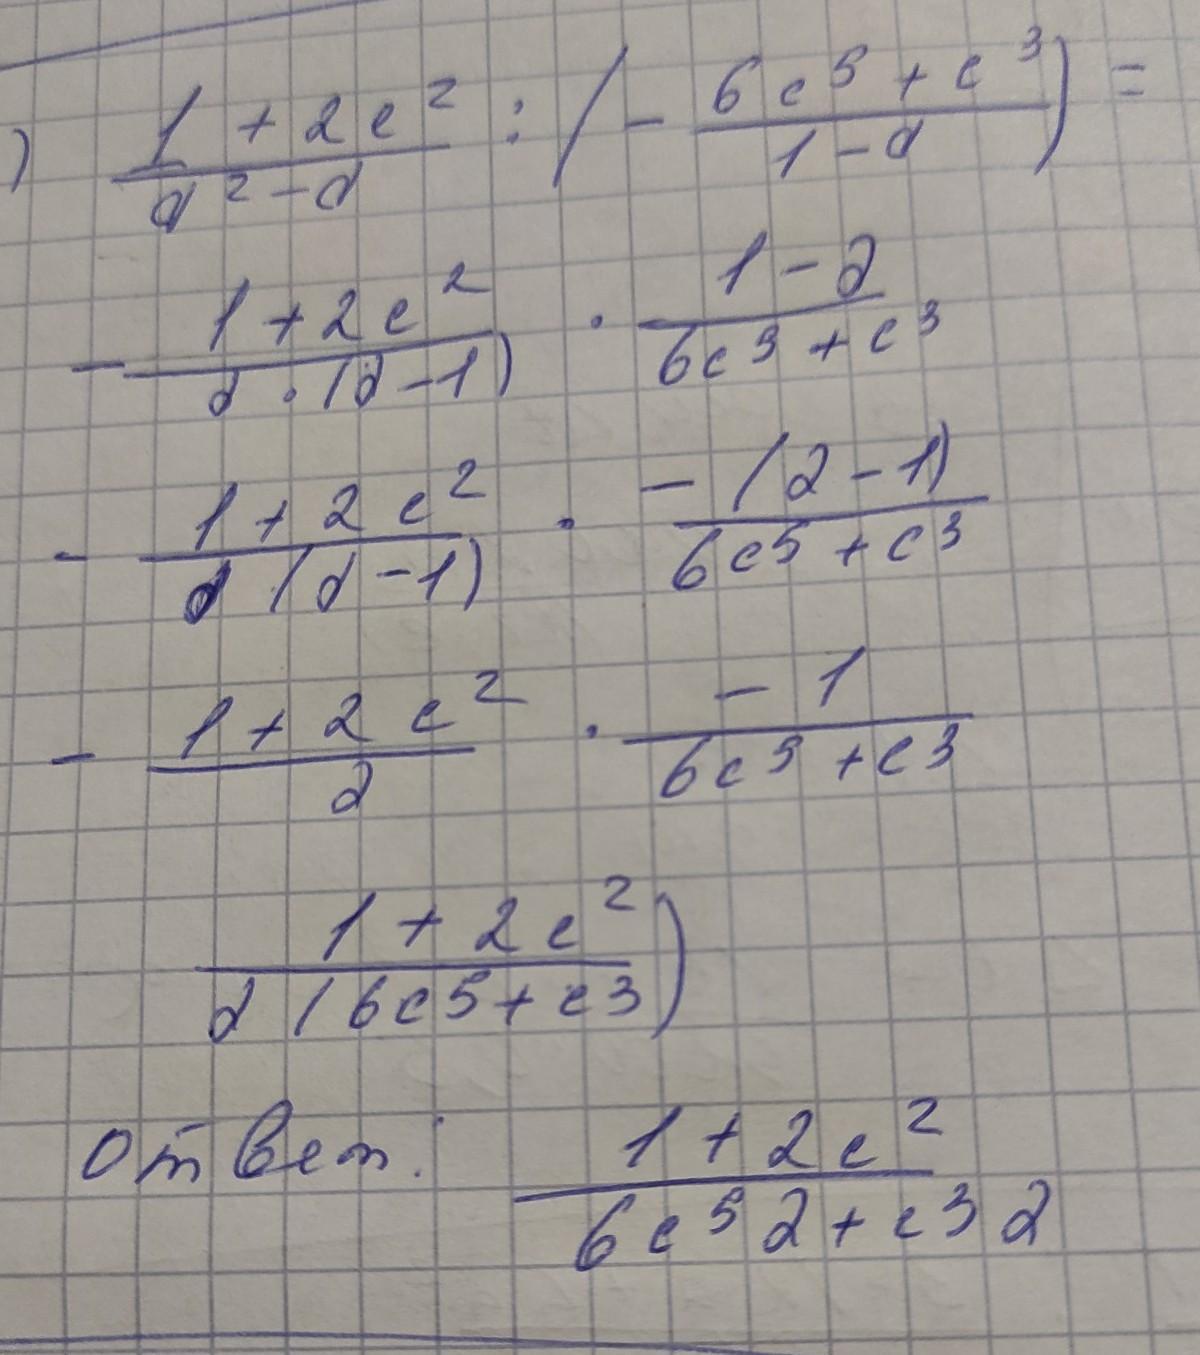 ) (1 + 2c²)/(d² - d) : (- (6c⁵ + c³)/(1 - d)) =
- (1 + 2c²)/(d · (d - 1)) · (1 - d)/(6c⁵ + c³)
- (1 + 2c²)/(d (d - 1)) · (- (d - 1))/(6c⁵ + c³)
- (1 + 2c²)/d · (- 1)/(6c⁵ + c³)
(1 + 2c²)/(d (6c5 + c3))
Ответ: (1 + 2c²)/(6c⁵d + c³d)